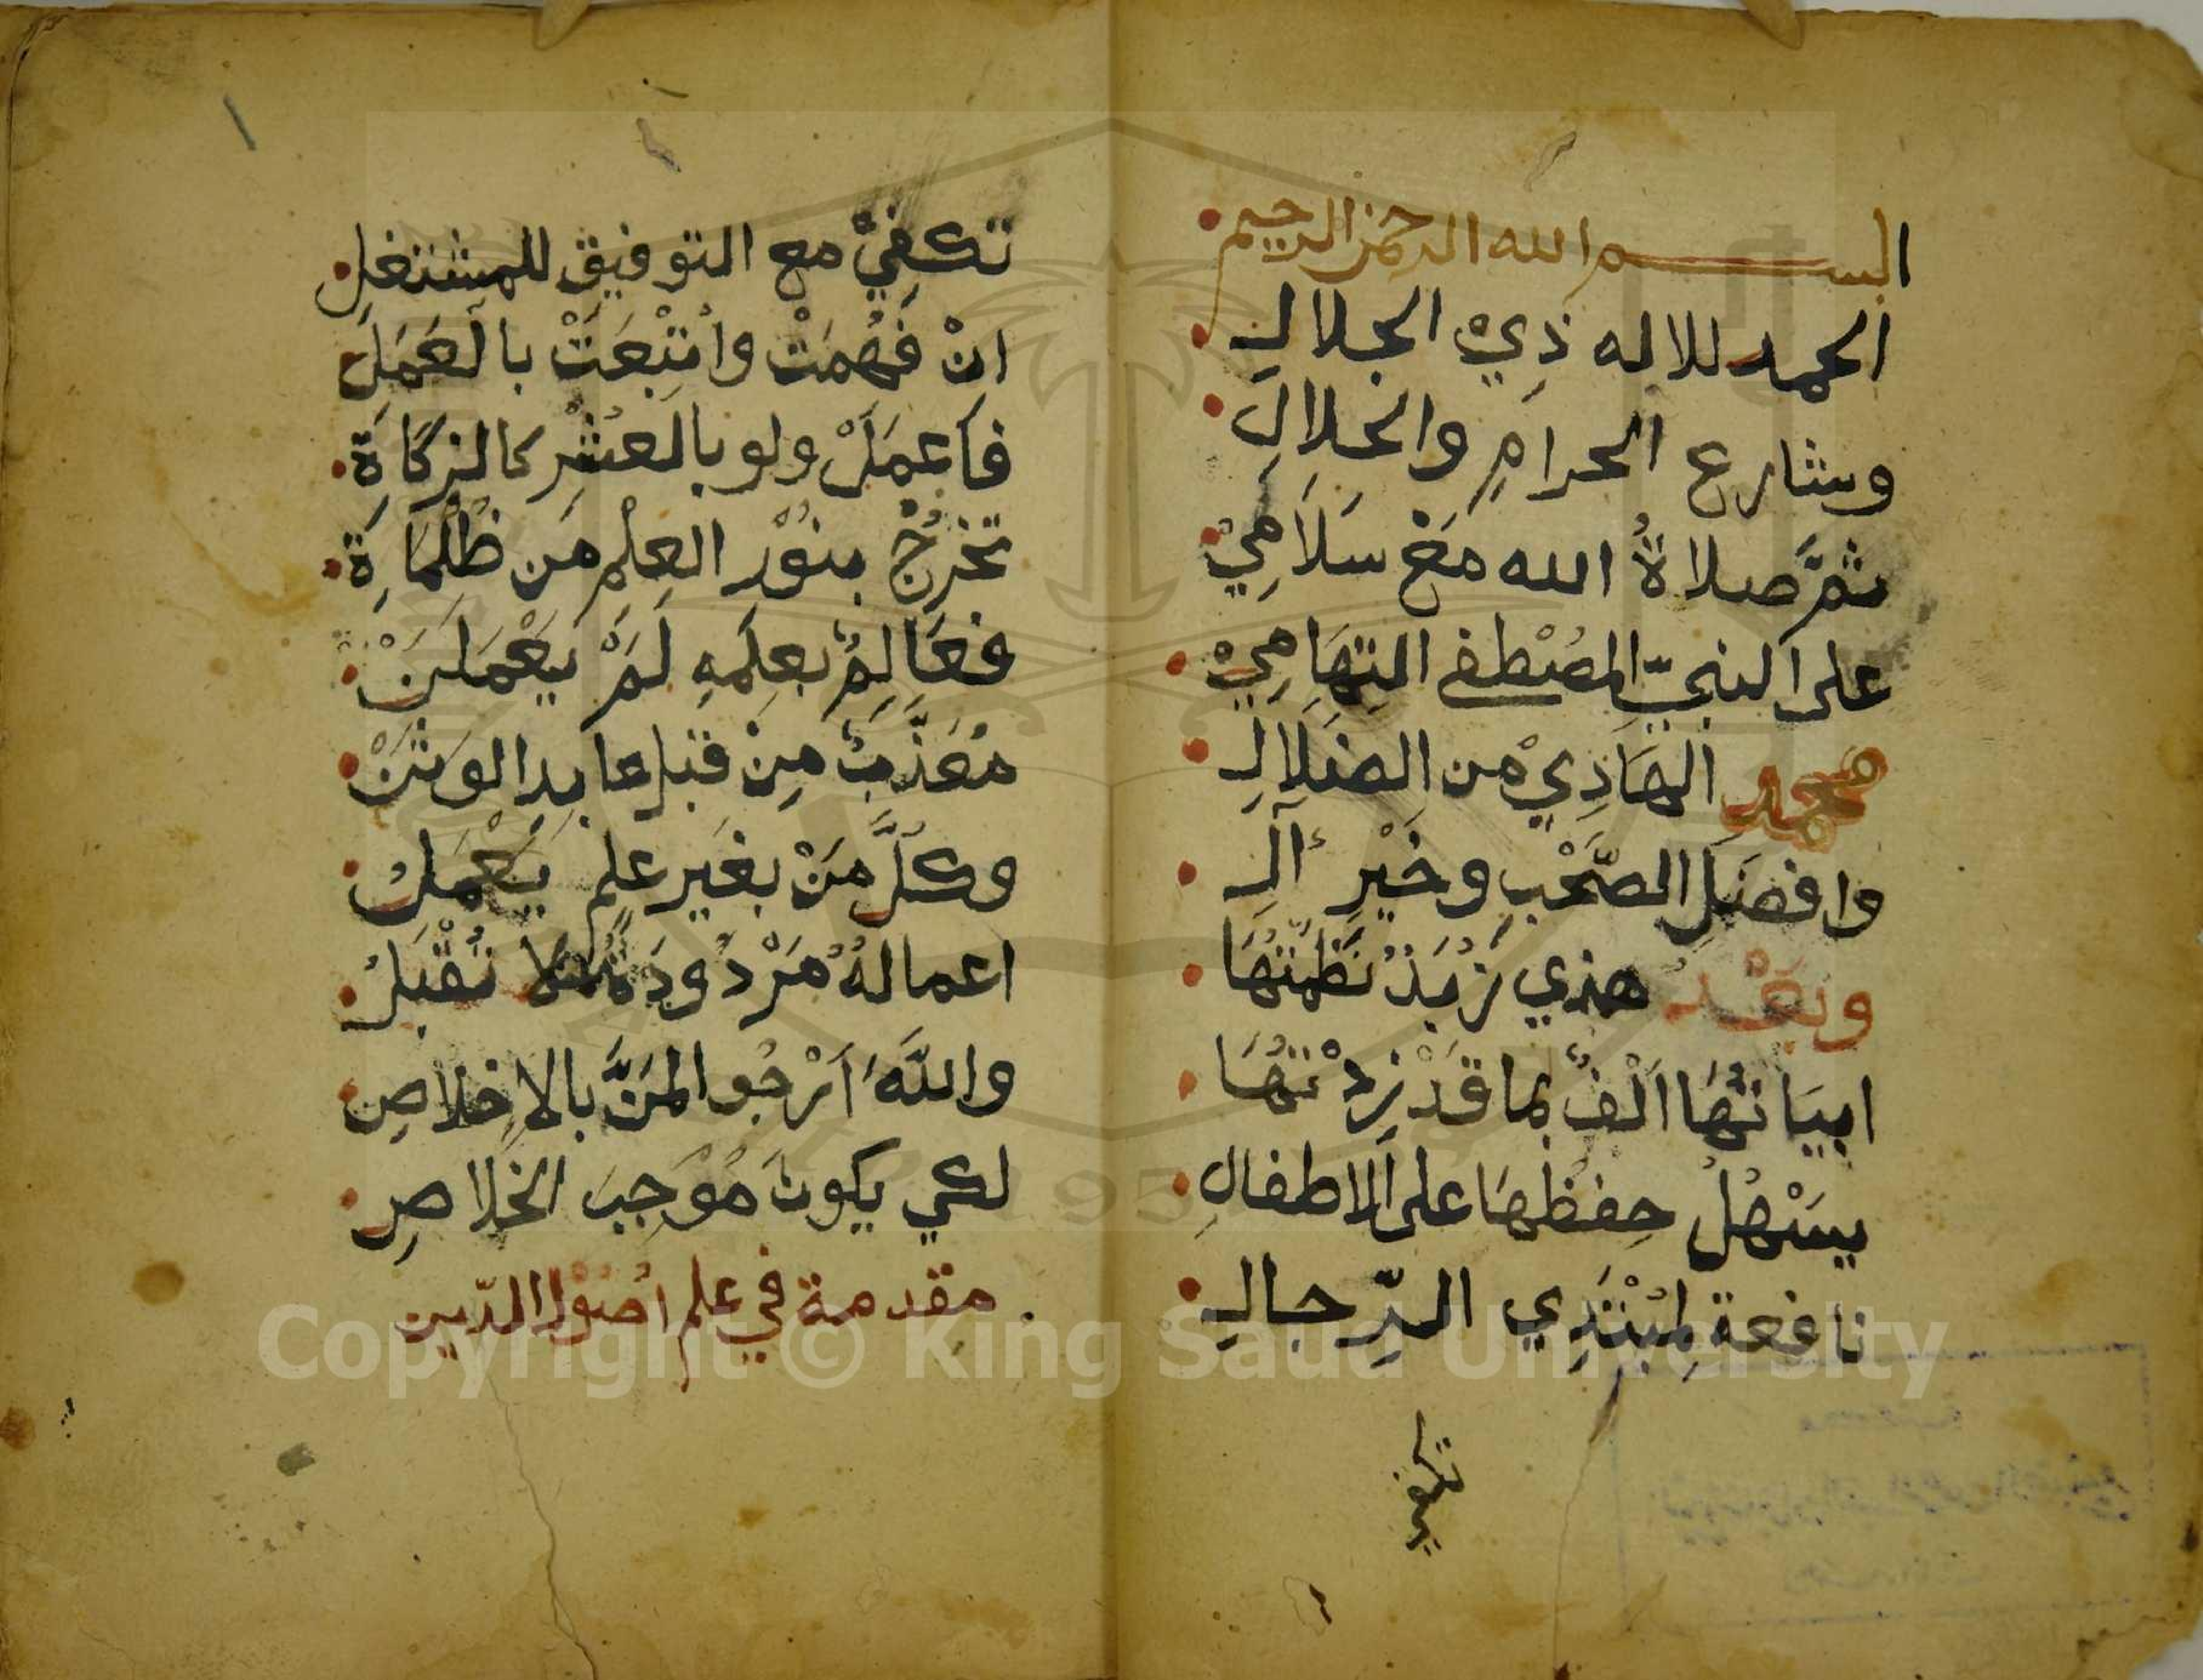 البسم الله الرحمن الرحيم
الحمد للاله ذِيْ الجلالِ
وشارع الحرامِ والحلالِ
ثمَّ صلاةُ الله مَعْ سَلَامِيْ
على النبيِّ المصْطفى التِهَامِيْ
محمد الهَادِيْ من الضلَالِ
وافضَلِ الصّحْبِ وخَيْرِ آلِ
وبَعْدُ هذي زُبَدٌ نَظَمْتُهَا
ابيَاتُهَا اَلْفٌ بما قَدْ زِدْتُهَا
يسَْهُلُ حِفظُهَا على الاطفالِ
نافعة لمُبْتَدِي الرِّجالِ
تكفي
تكفِيْ مع التوفيق للمشتغلِ
انْ فَهُمَتْ واُتْبِعَتْ بالعَمَلِ
فاَعمَلْ ولو بالعُشْرِ كالزكَاةِ
تخرُجْ بنوْر العِلْمِ من ظُلْمَاةِ
فعَالِمٌ بعِلمِهِ لَمْ يَعْمَلَنْ
مُعَذَّبٌ مِنْ قبل عابدِ الوَثَنْ
وكلُّ مَنْ بغَير علمٍ يَعْمَلُ
اعمالهُ مَرْدُودَةٌ لا تُقْبَلُ
واللَّهَ اَرْجُو المَنَّ بالاِخلاصِ
لكي يكونَ مُوْجِبَ الخلاصِ
مقدمة في علم اصُوْل الدّين
Copyright © King Saud University